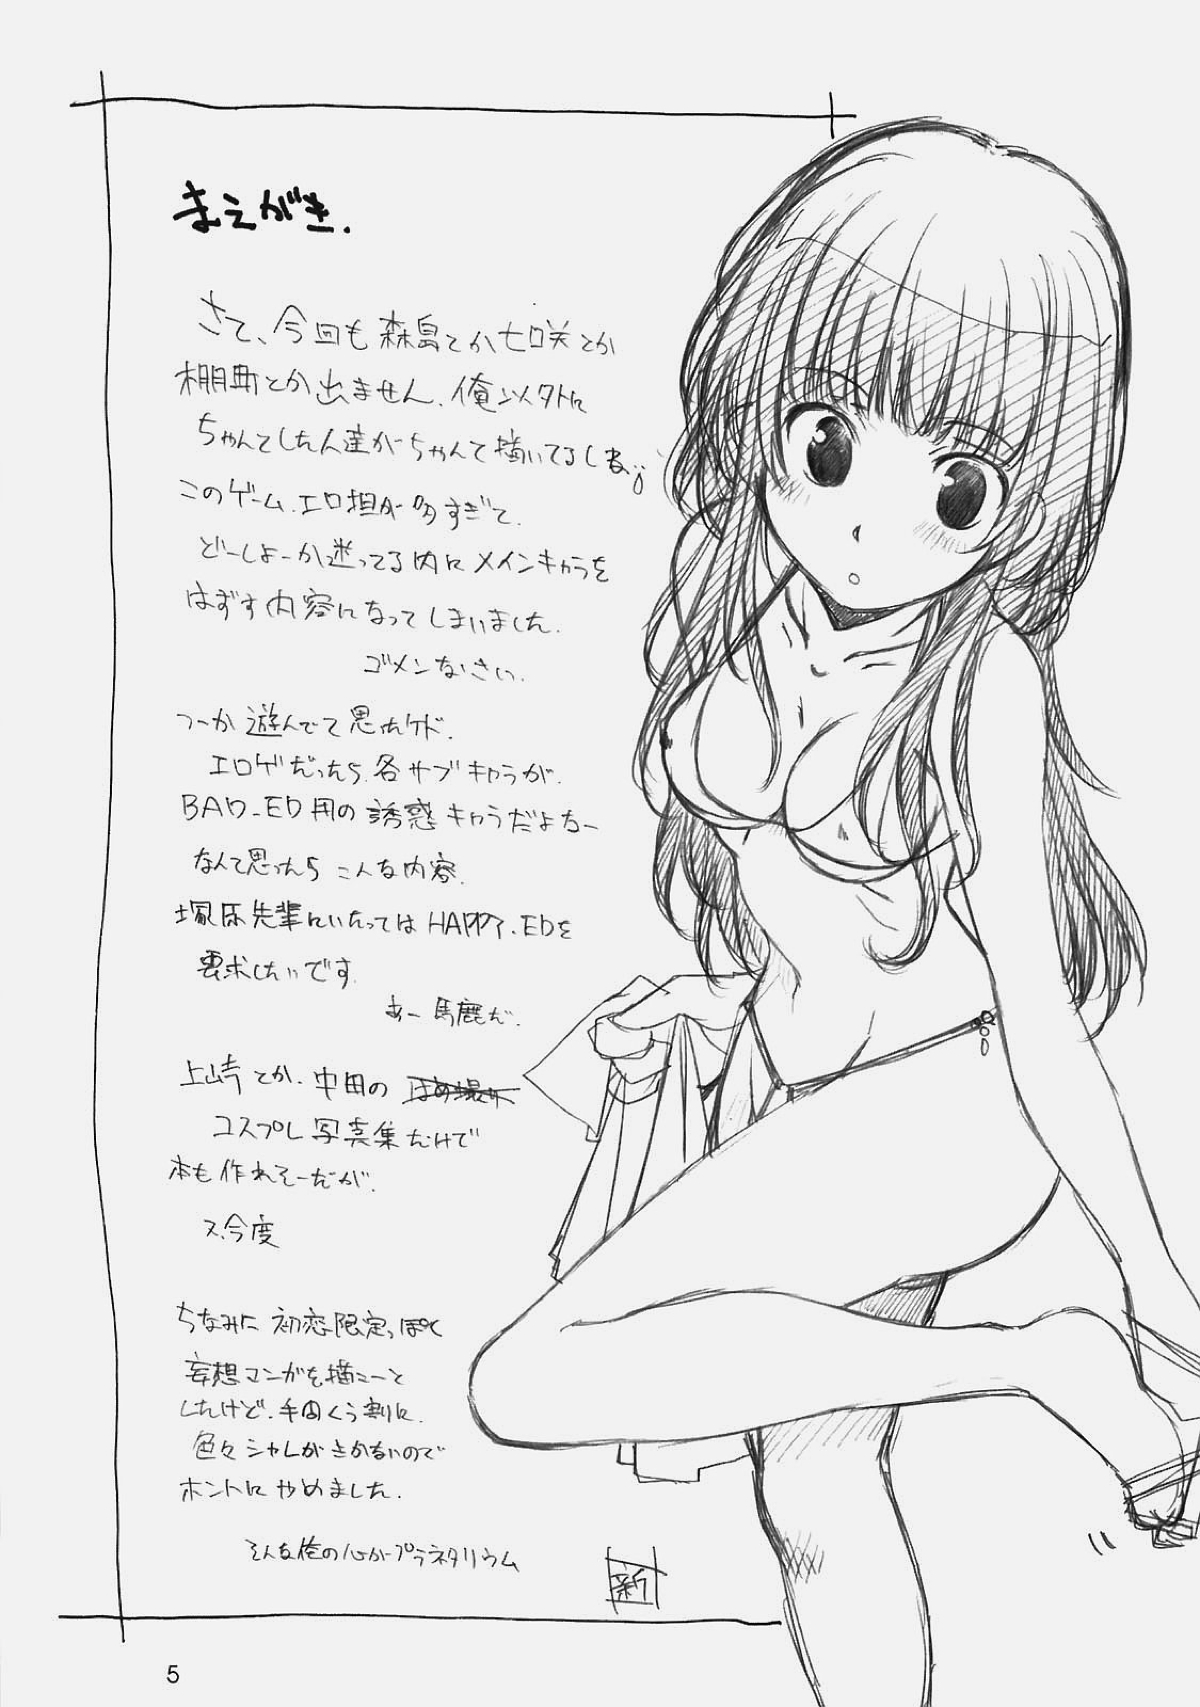 まえがき.
さて、今回も森島とか七咲とか
棚町とか出ません、俺以外に
ちゃんとした人達がちゃんと描いてるしね。
このゲーム、エロ担が多すぎて、
どーしよーか迷ってる内にメインキャラを
はずす内容になってしまいました.
ゴメンなさい.
つーか遊んでて思ったけど.
エロゲだったら、各サブキャラが、
BAD_ED用の誘惑キャラだよなー
なんて思ったら こんな内容.
塚原先輩にいたっては HAPPY.EDを
要求したいです.
あー馬鹿だ.
上崎とか、中田の
コスプレ写真集だけで
本も作れそーだが.
ス、今度
ちなみに 初恋限定っぽく
妄想マンガを描こーと
したけど、手間くう割に.
色々シャレがきかないので
ホントに やめました.
そんな俺の心がプラネタリウム
新
5